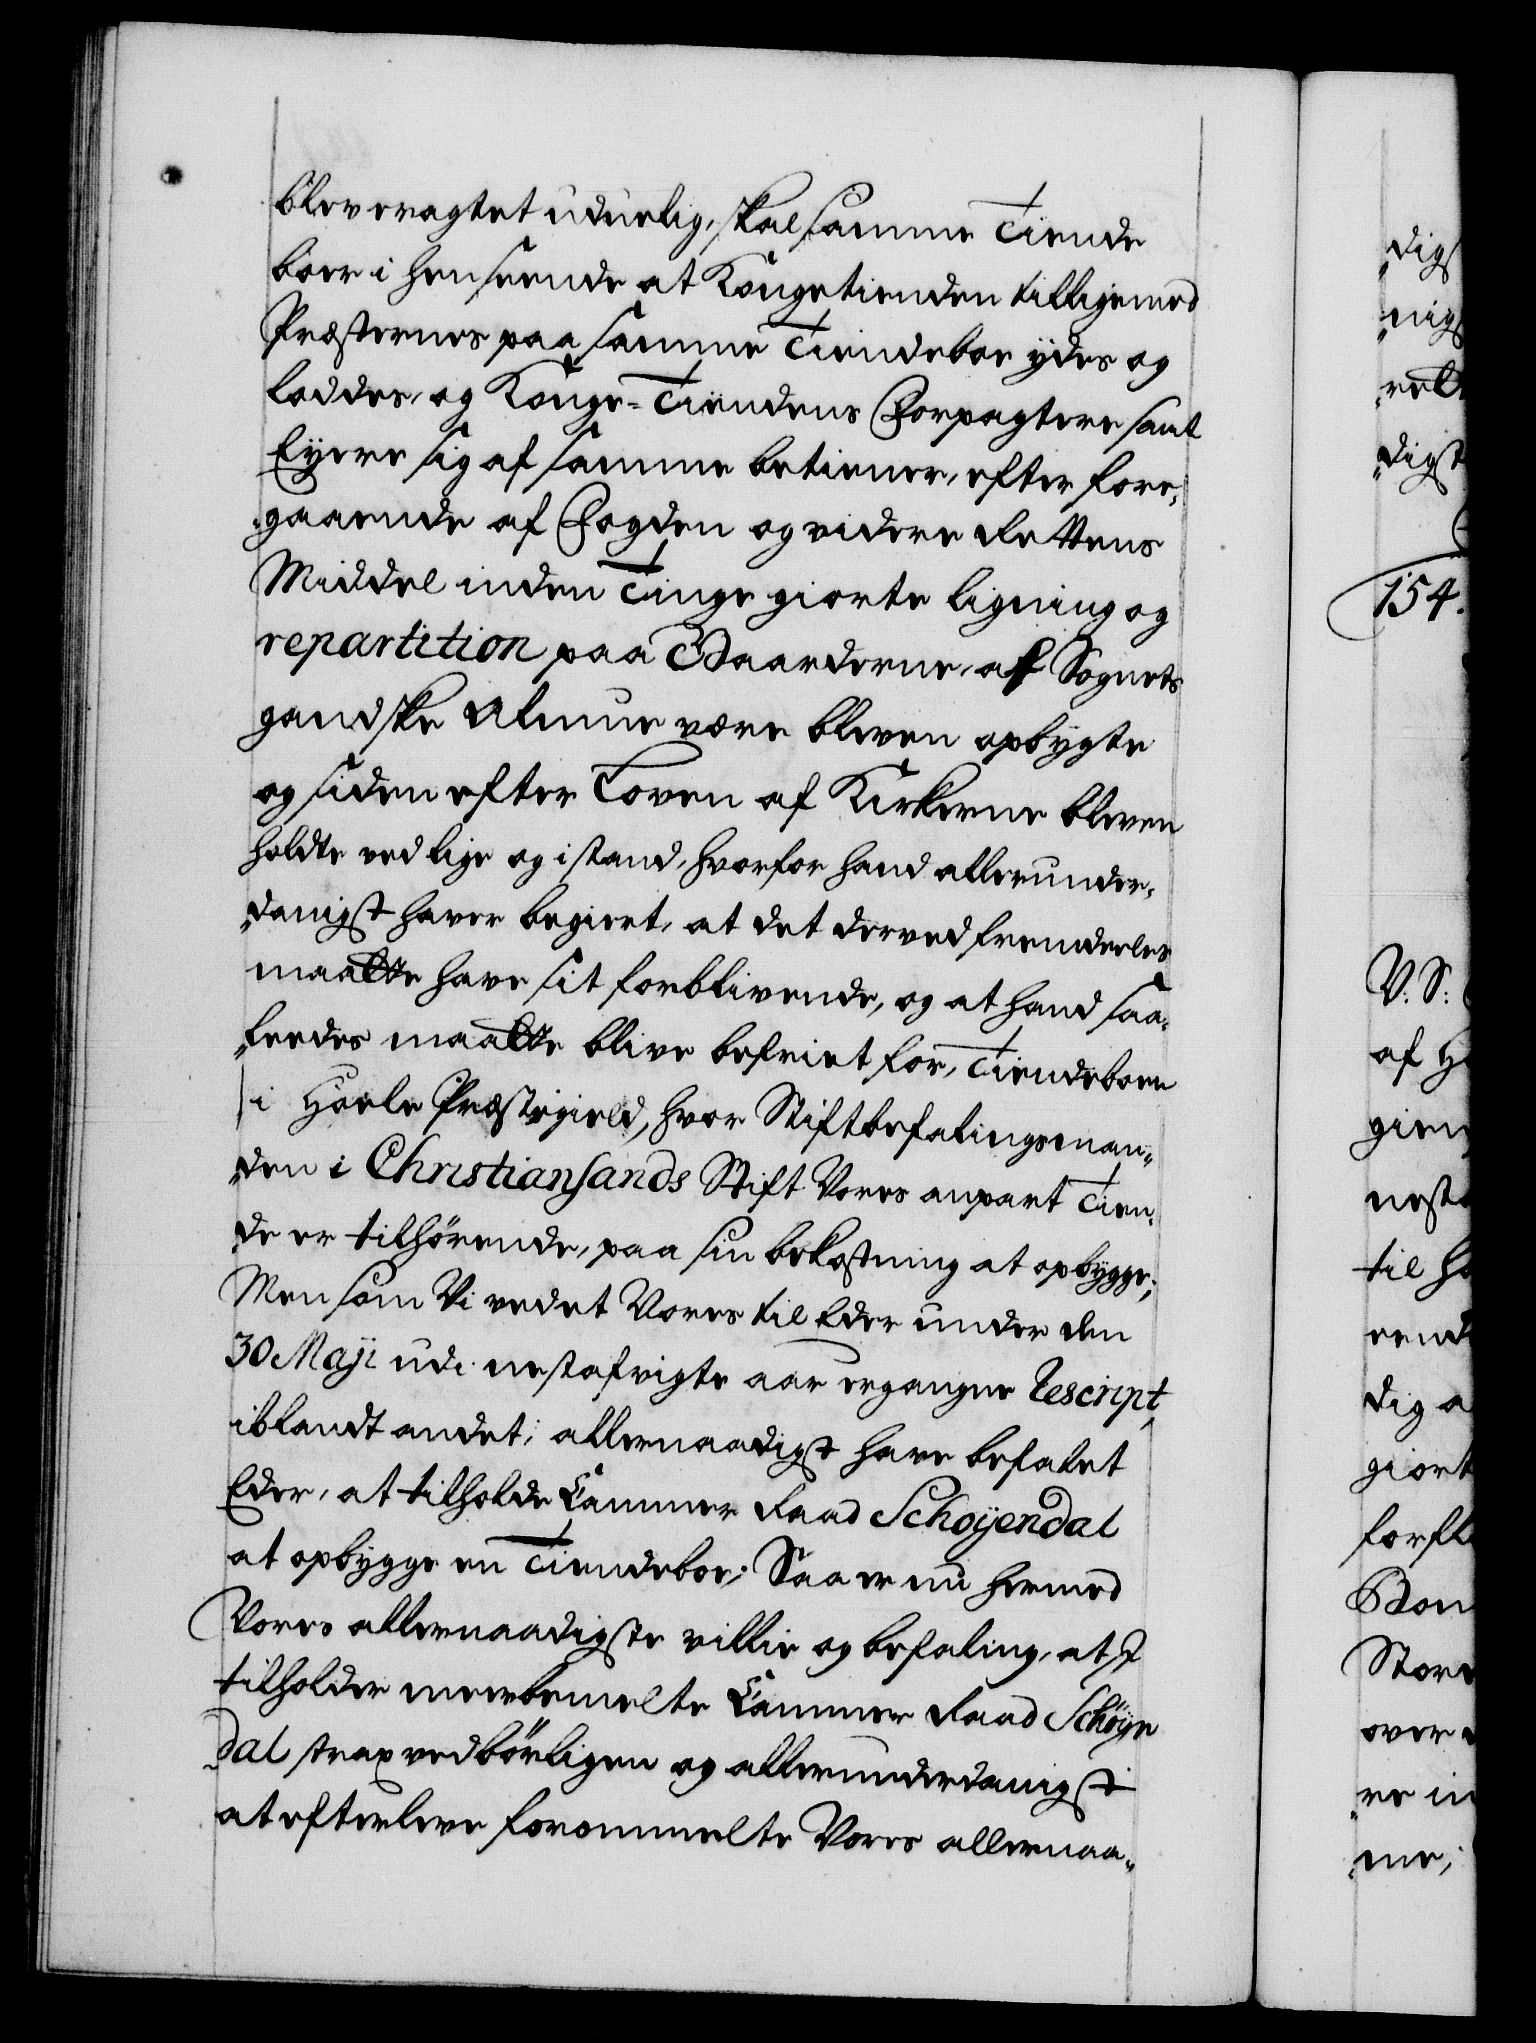 blev eragtet uduelig, skal samme Tiende
boer i henseende at Kongetienden tilligemed
Præsternes paa samme Tiendeboe ydes og
loddes, og Konge-Tiendens Forpagtere samt
Eyere sig af samme betiener, efter fore-
gaaende af Fogden og videre Rettens
Middel inden Tinge giorte ligning og
repartition paa Gaarderne, af Sognets
gandske Almue være bleven opbygte
og siden efter Loven af Kirkerne bleven
holdte ved lige og i stand, hvorfor hand allerunder-
danigst haver begiert, at det derved fremdeeles
maatte have sit forblivende, og at hand saa-
leedes maatte blive befriet for, Tiendeboen
i Hoele Præstegield, hvor Stiftbefalingsman-
den i Christiansands Stift Vores anpart Tien-
de er tilhørende, paa sin bekostning at opbygge;
Men som Vi vedet Vores til Eder under den
30 Maji udi nestafvigte aar ergangne Rescript,
iblandt andet, allernaadigst have befalet
Eder, at tilholde Cammer Raad Schøyendal
at opbygge en Tiendeboe; Saa er nu hermed
Vores allernaadigste villie og befaling, at I
tilholder meerbemelte Cammer Raad Schøyen
dal strax vedbørligen og allerunderdanigst
at efterleve forommelte Vores allernaa-
digs
nigs
digst
154.
V. S:
af H
gien
nest
til ho
rend
dig a
giort
Bon
Store
over
re in
me,